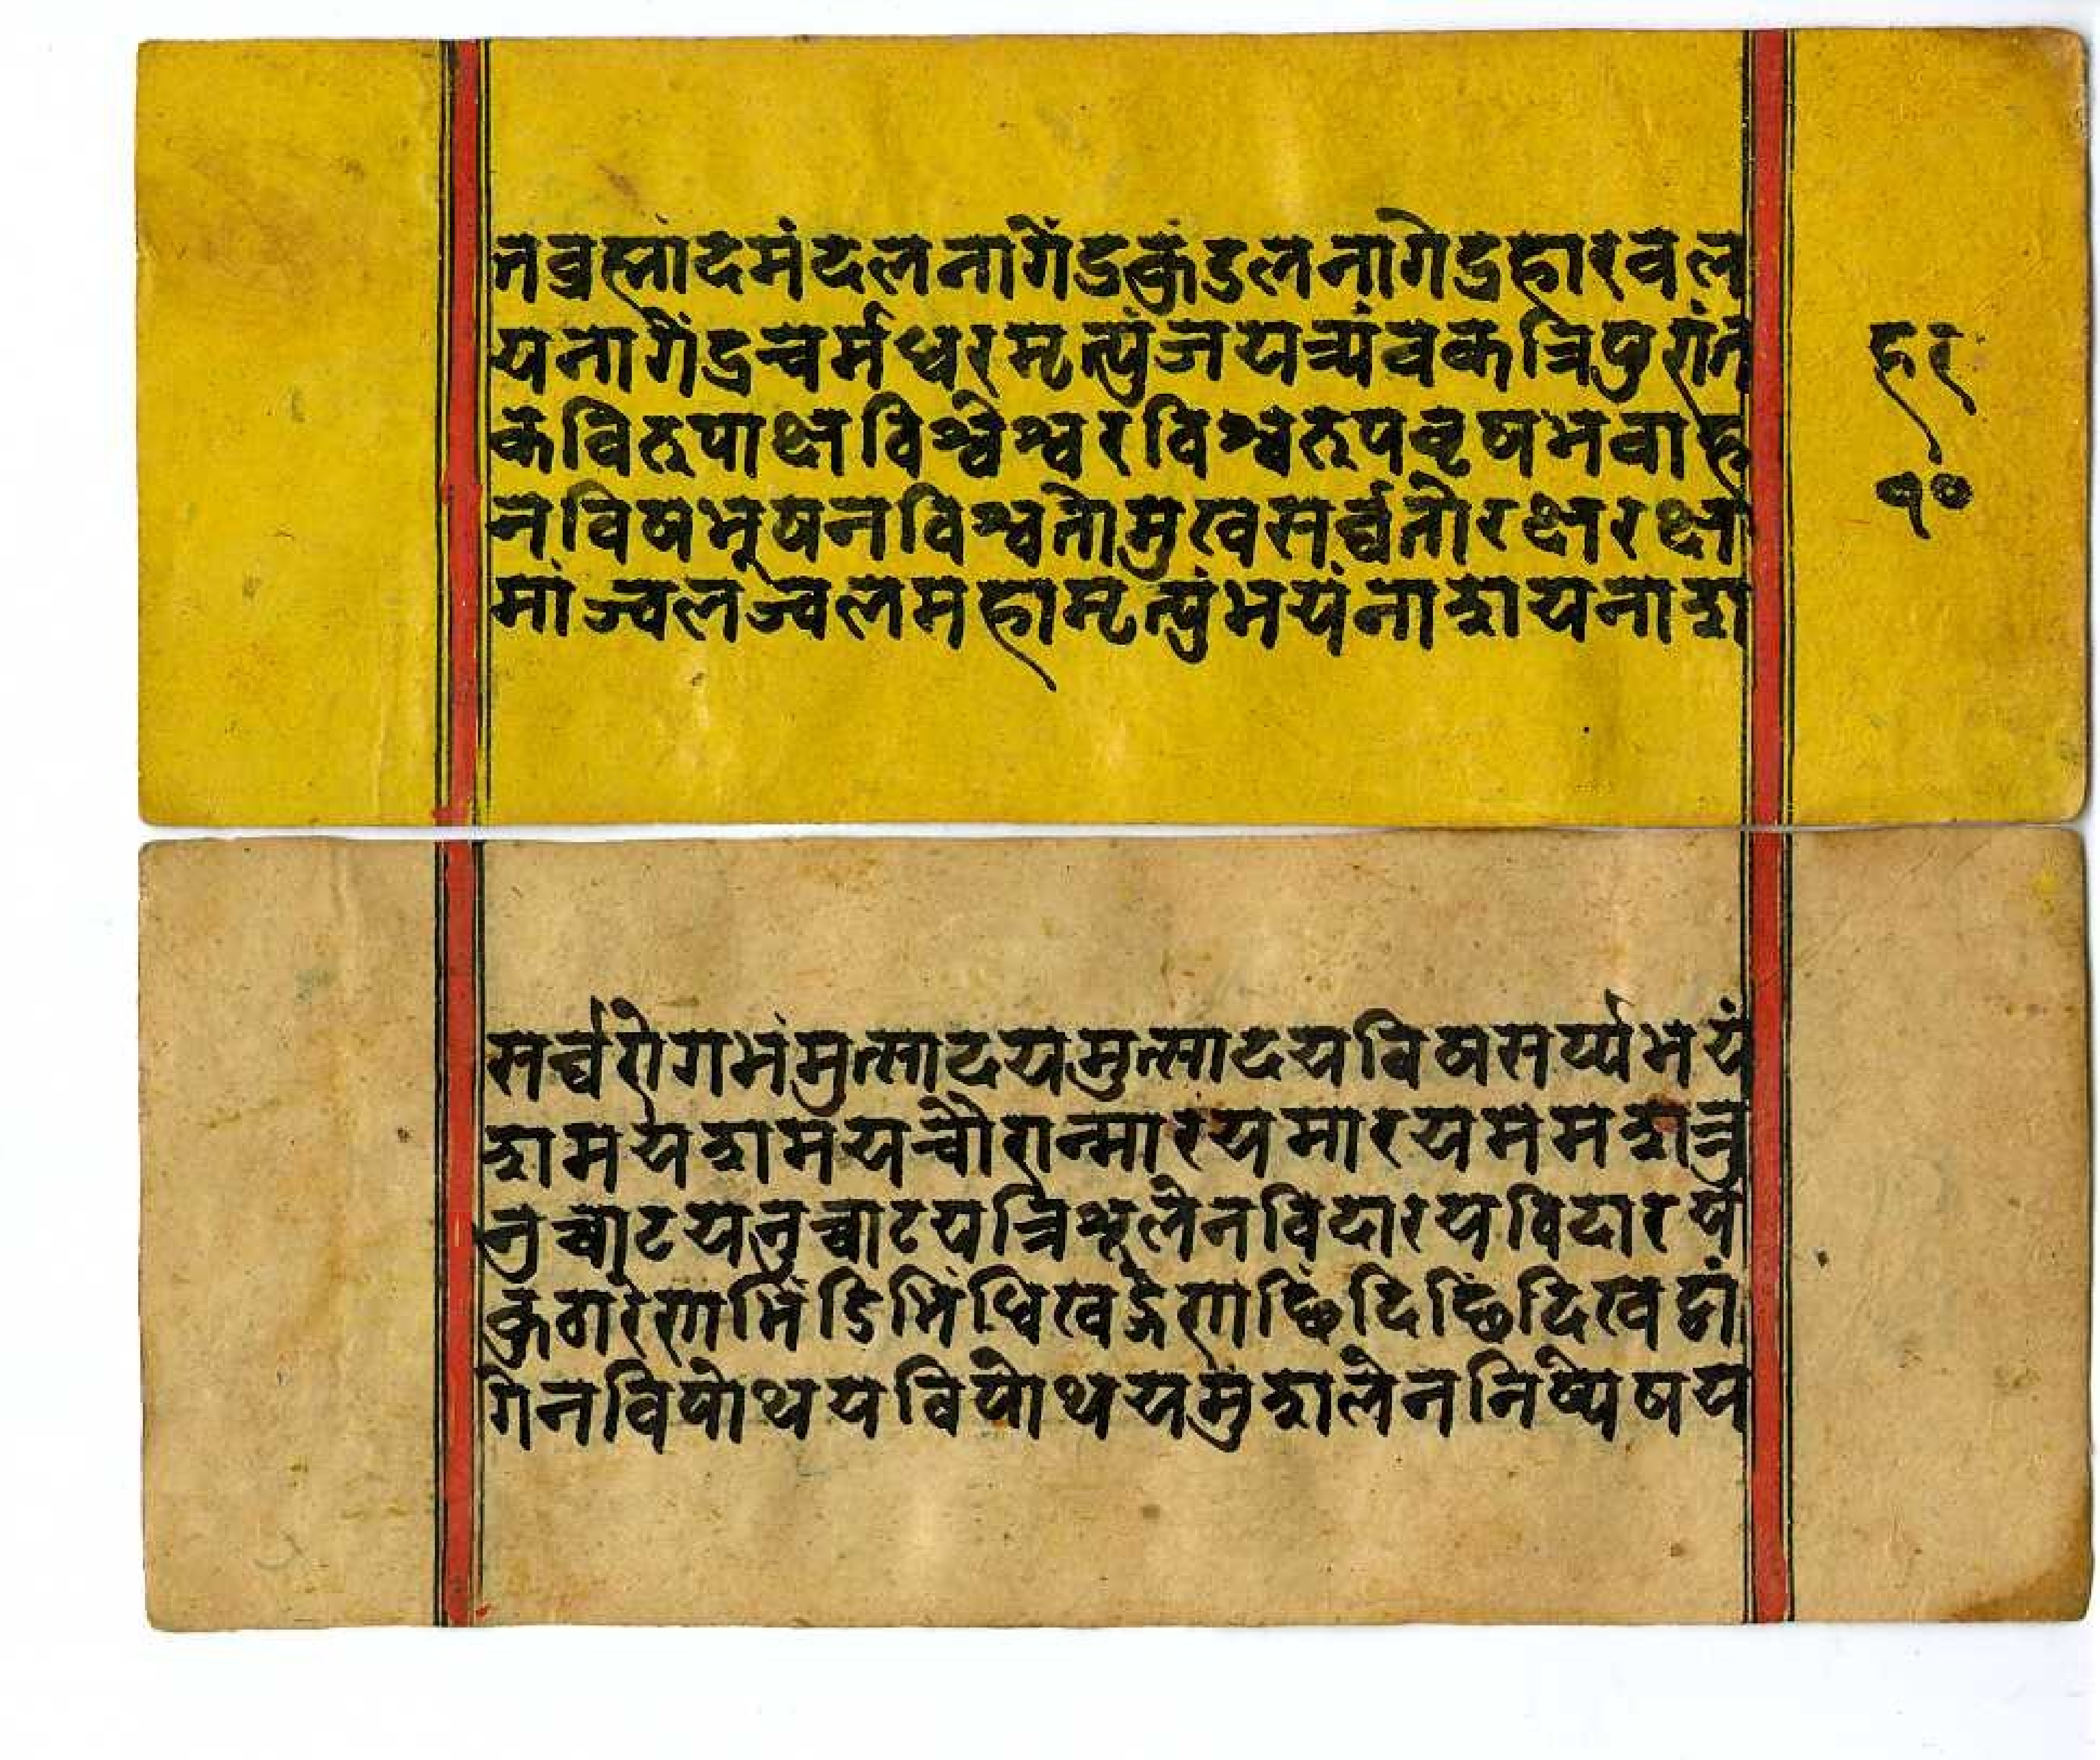 नव्रह्मांदमंदलनागेंद्रकुंडलनागेंद्रहारवल
यनागेंद्रचर्मध्वरमृत्युंजयत्र्यंवकत्रिपुरांत
कविरूपाक्षविश्वेश्वरविश्वरूपवृषभवाह
नविषभूषनविश्वतोमुखसर्व्वतोरक्षरक्ष
मांज्वलज्वलमहामृत्युंभयंनाशयनाश
हर
१०
सर्व्वरोगभंमुत्सादयमुत्सादयविषसर्प्यभयं
शमयशमयचौरान्मारयमारयममशत्रु
नुच्चाटयनुच्चाटयत्रिशूलेनविदारयविदारय
कुठारेणभिंडिभिंधिखड्गेणछिंदिछिंदिखद्वां
गेनविपोथयविपोथयमुशलेननिष्पेषय